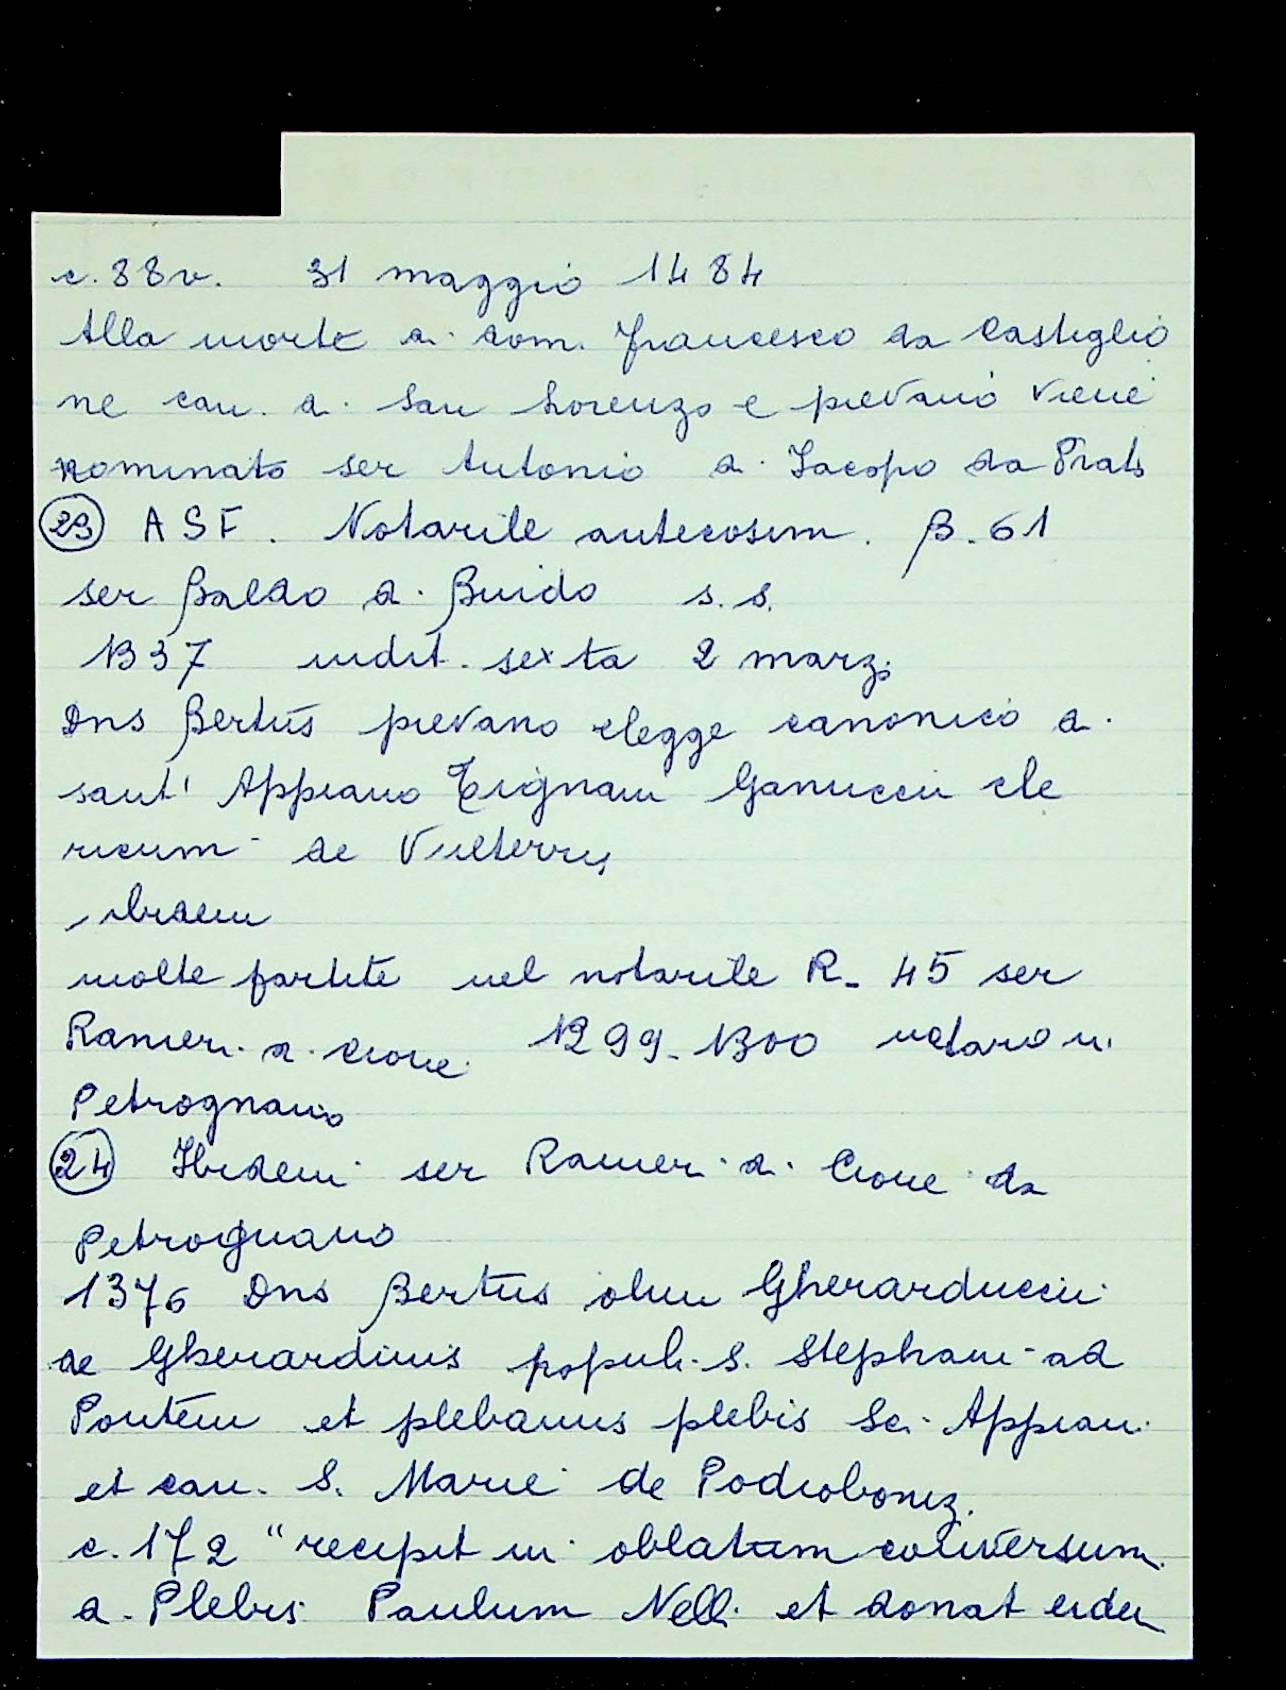 c. 88v. 31 maggio 1484
Alla morte di dom. Francesco da Castiglio
ne can. di San Lorenzo e pievano viene
nominato ser Antonio di Iacopo da Prato
23 ASF. Notarile antecosim. B. 61
ser Baldo di Guido s.s.
1337 indit. sexta 2 marzi
Dns Bertus pievano elegge canonico di
sant' Appiano Ganuccii cle
ricum de Vulterris
ibidem
molte partite nel notarile R. 45 ser
Ranieri di Cione 1299-1300 notaro in
Petrognano
24 Ibidem ser Ranieri di Cione da
Petrognano
1376 Dns Bertus olim Gherarduccii
de Gherardinis populi S. Stephani ad
Pontem et plebanus plebis Sci Appiani
et can. S. Marie de Podioboniz.
c. 172 "recepit in oblatum conversum
d. Plebis Paulum Nelli et donat eidem